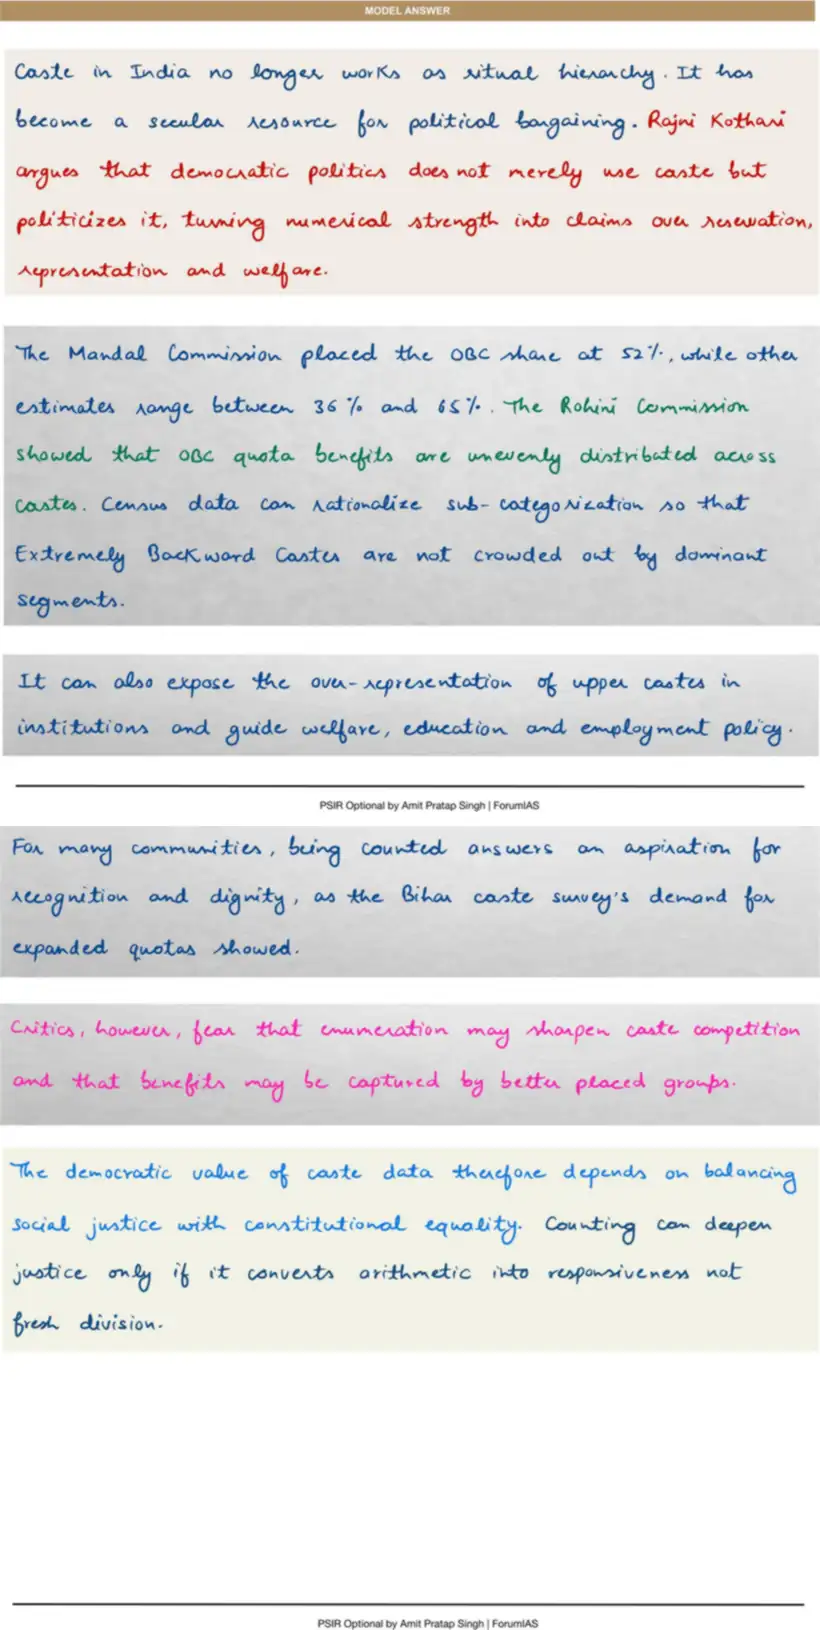 MODEL ANSWER
Caste in India no longer works as ritual hierarchy. It has
become a secular resource for political bargaining. Rajni Kothari
argues that democratic politics does not merely use caste but
politicizes it, turning numerical strength into claims over reservation,
representation and welfare.
The Mandal Commission placed the OBC share at 52%, while other
estimates range between 36% and 65%. The Rohini Commission
showed that OBC quota benefits are unevenly distributed across
castes. Census data can rationalize sub-categorization so that
Extremely Backward Castes are not crowded out by dominant
segments.
It can also expose the over-representation of upper castes in
institutions and guide welfare, education and employment policy.
PSIR Optional by Amit Pratap Singh | ForumIAS
For many communities, being counted answers an aspiration for
recognition and dignity, as the Bihar caste survey's demand for
expanded quotas showed.
Critics, however, fear that enumeration may sharpen caste competition
and that benefits may be captured by better placed groups.
The democratic value of caste data therefore depends on balancing
social justice with constitutional equality. Counting can deepen
justice only if it converts arithmetic into responsiveness not
fresh division.
PSIR Optional by Amit Pratap Singh | ForumIAS